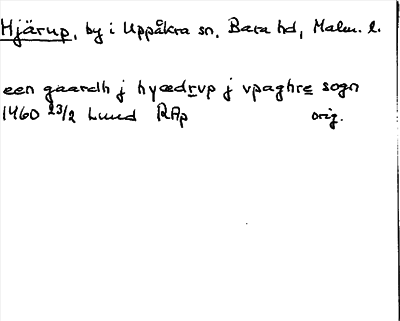 Hjärup, by i Uppåkra sn, Bara hd, Malm. l.
een gaardh j hyædrvp j vpaghre sogn
1460 23/2 Lund RAp orig.